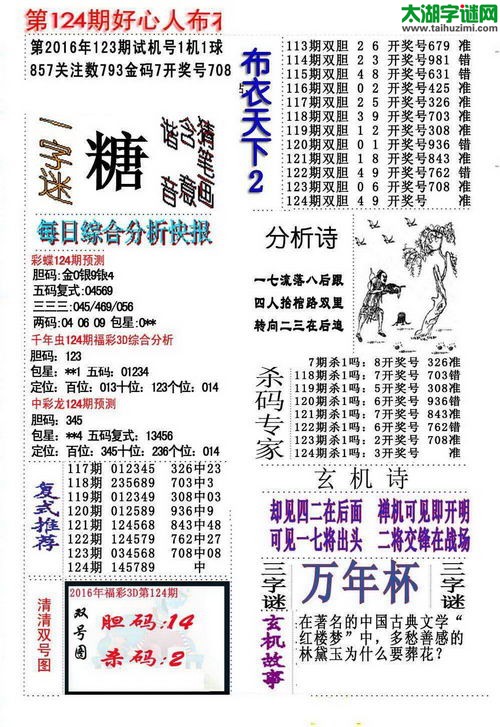 第124期好心人布衣
太湖字谜网
www.taihuzimi.com
第2016年123期试机号1机1球
857关注数793金码7开奖号708
一字迷
糖
猜笔画
含意
猜音
每日综合分析快报
彩蝶124期预测
胆码:金0银9银4
五码复式:04569
三三三:045/469/056
两码:04 06 09 包星:0**
千年虫124期福彩3D综合分析
胆码: 123
包星: **1 五码: 01234
定位: 百位: 013十位: 123个位: 014
中彩龙124期预测
胆码: 345
包星: **4 五码复式: 13456
定位: 百位: 345十位: 236个位: 014
复式推荐
117期 012345 326中23
118期 235689 703中3
119期 012349 308中03
120期 012589 936中9
121期 124568 843中48
122期 124567 762中27
123期 034567 708中07
124期 145789 中
清清双号图
2016年福彩3D第124期
双号图
胆码:14
杀码:2
布衣天下2
113期双胆 2 6 开奖号679 准
114期双胆 2 3 开奖号981 错
115期双胆 4 8 开奖号651 错
116期双胆 0 2 开奖号425 准
117期双胆 2 5 开奖号326 准
118期双胆 3 9 开奖号703 准
119期双胆 1 2 开奖号308 错
120期双胆 0 1 开奖号936 错
121期双胆 1 8 开奖号843 准
122期双胆 4 9 开奖号762 错
123期双胆 0 6 开奖号708 准
124期双胆 4 9 开奖号 准
分析诗
一七流落八后跟
四人抬棺路双里
转向二三在后追
杀码专家
7期杀1吗: 8开奖号 326准
118期杀1吗: 7开奖号 703错
119期杀1吗: 5开奖号 308准
120期杀1吗: 4开奖号 936准
121期杀1吗: 7开奖号 843准
122期杀1吗: 6开奖号 762错
123期杀1吗: 2开奖号 708准
124期杀1吗: 3开奖号 准
玄机诗
却见四二在后面 禅机可见即开明
可见一七将出头 二将交锋在战场
三字谜
万年杯
三字谜
玄机故事
在著名的中国古典文学“
红楼梦”中,多愁善感的
林黛玉为什么要葬花?